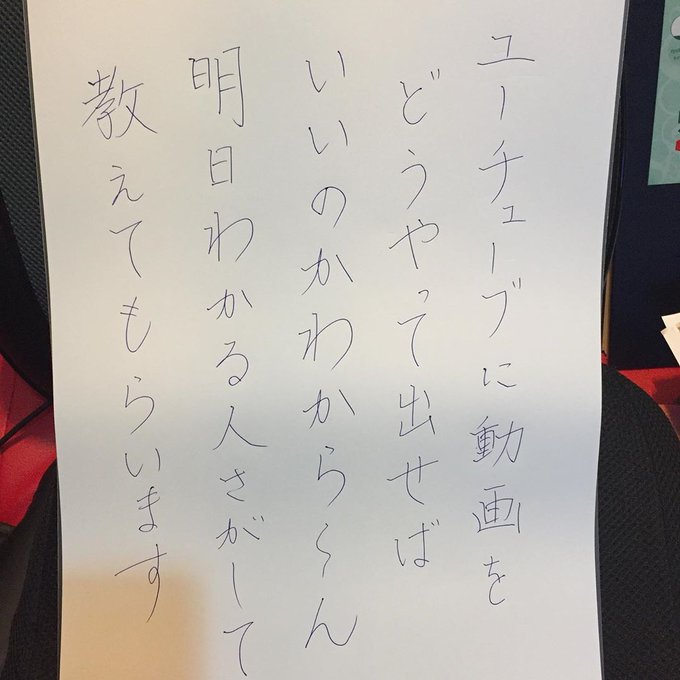 ユーチューブに動画を
どうやって出せば
いいのかわから〜ん
明日わかる人さがして
教えてもらいます